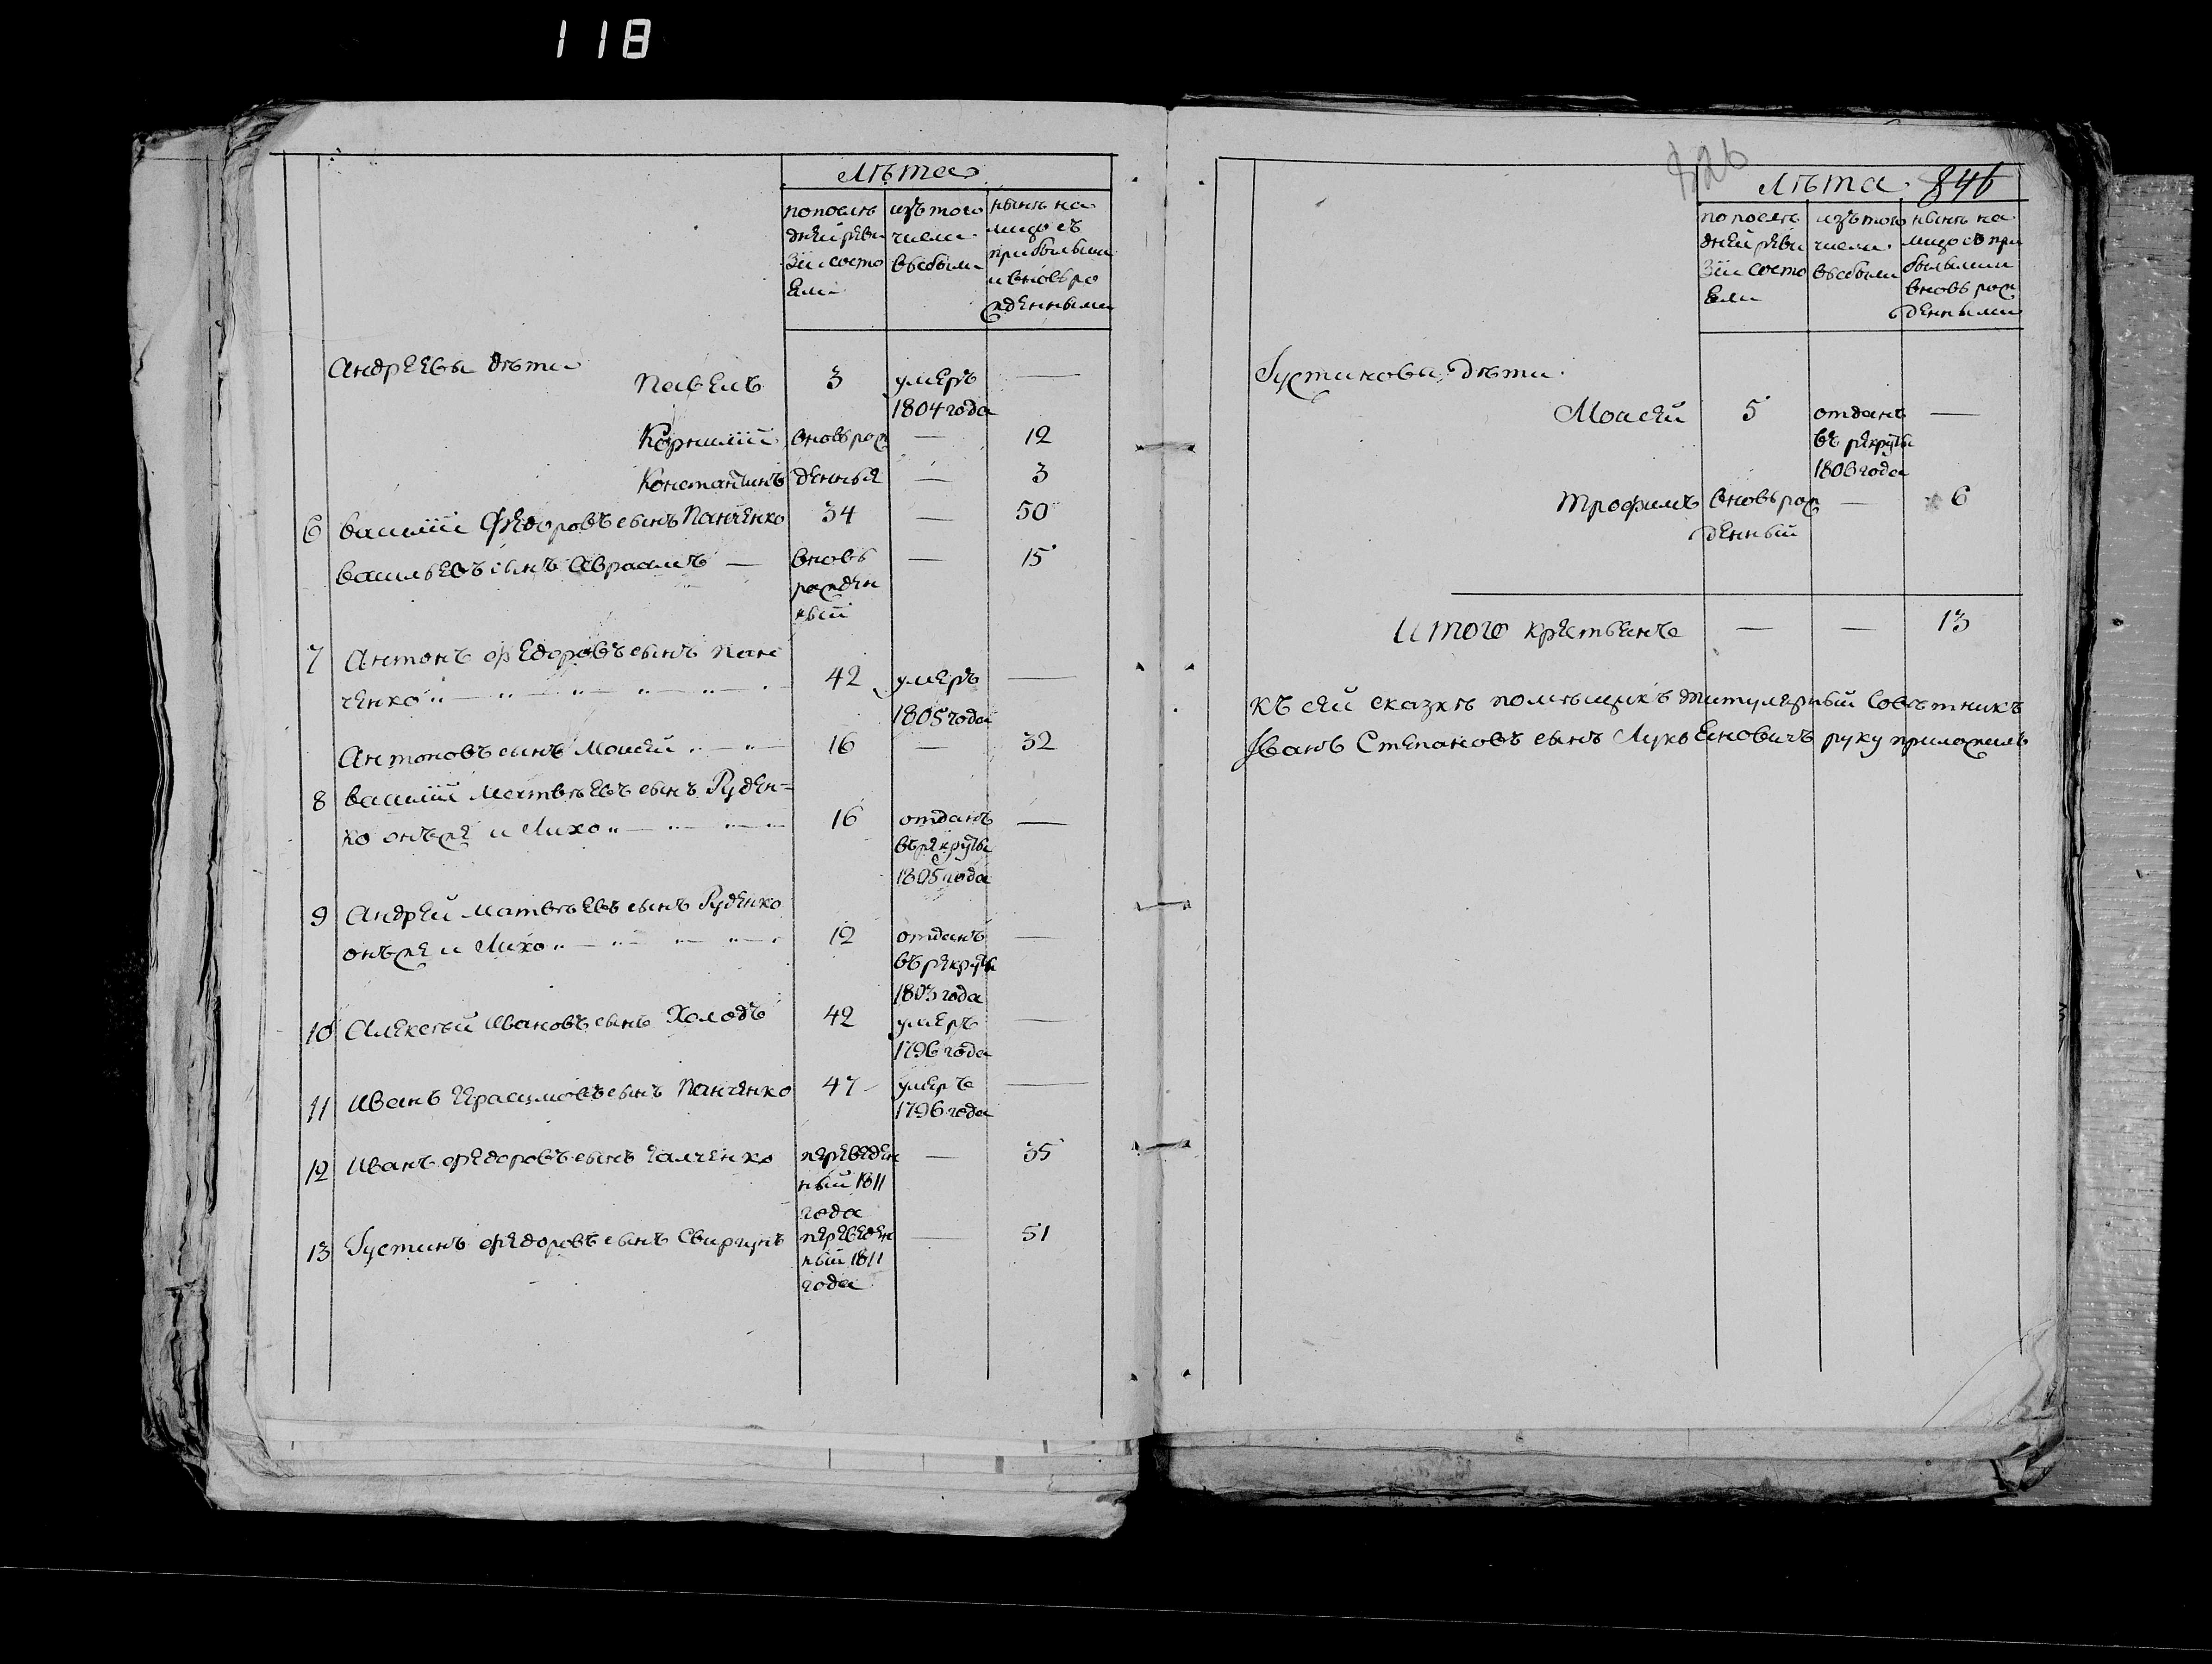 118
Лѣта
по послѣ изъ того нынѣ на
дней реви числа лицо съ
зіи состо выбыли прибылыми
яли и вновь ро
жденными
Андреевы дѣти
Павелъ 3 умеръ —
1804 года
Корнилій вновь рож — 12
Константинъ денныя — 3
6 Василій Федоровъ сынъ Панченко 34 — 50
Васильевъ сынъ Авраамъ — вновь — 15
рожден
ный
7 Антонъ Федоровъ сынъ Пан
ченко 42 умеръ —
1805 года
Антоновъ сынъ Моисей 16 — 32
8 Василій Матвѣевъ сынъ Руден=
ко онъ же и Лихо 16 отданъ —
въ рекруты
1805 года
9 Андрей Матвѣевъ сынъ Руденко
онъ же и Лихо 12 отданъ —
въ рекруты
1803 года
10 Алексѣй Ивановъ сынъ Холодъ 42 умеръ —
1796 года
11 Иванъ Герасимовъ сынъ Панченко 47 умеръ —
1796 года
12 Иванъ Федоровъ сынъ Галченко переведен — 35
ный 1811
года
13 Густинъ Федоровъ сынъ Свиргунъ переведен — 51
ный 1811
года
826
Лѣта. 846
по послѣ изъ того нынѣ на
дней реви числа лицо съ при
зіи состо выбыли былыми
яли вновь рож
денными
Густиновы дѣти.
Моисей 5 отданъ —
въ рекруты
1806 года
Трофимъ вновь рож — 6
денный
Итого крестьянъ — — 13
Къ сей сказкѣ помѣщикъ титулярный совѣтникъ
Иванъ Степановъ сынъ Лукьяновичъ руку приложилъ